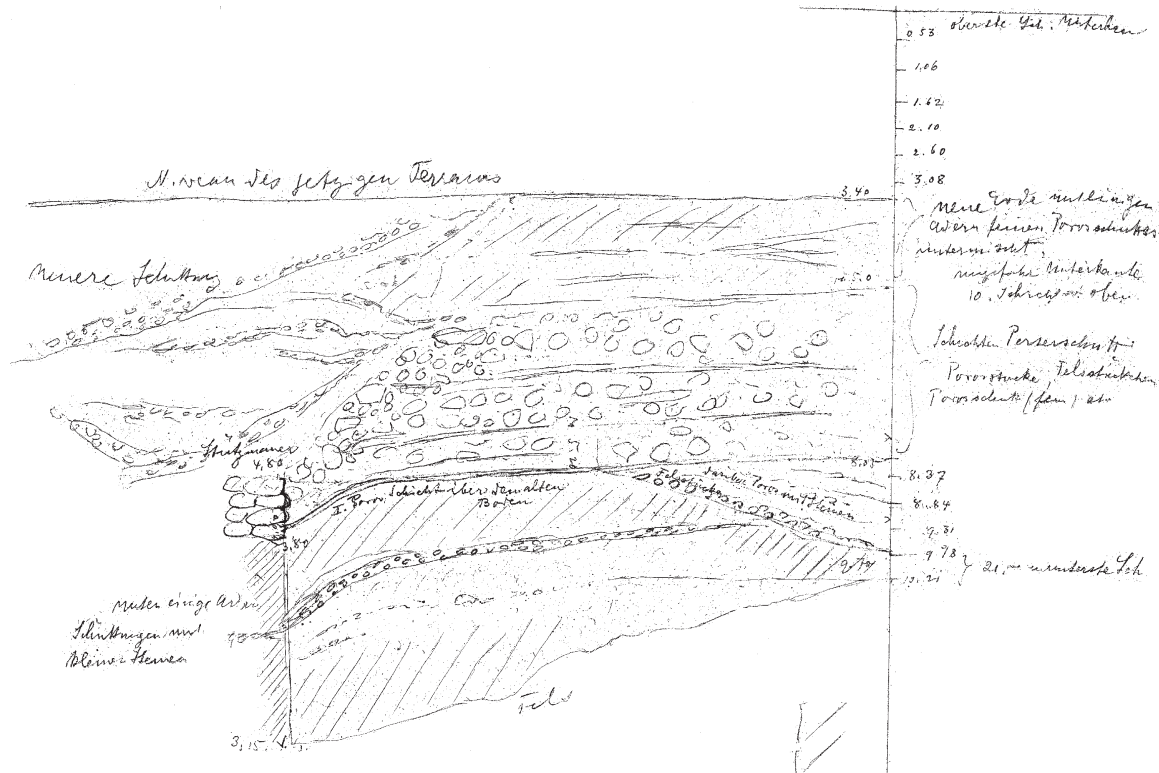 0.53 oberste Sch. Unterkan
1.06
1.62
2.10
2.60
3.08
Niveau des jetzigen Terrains
3.40
neue Erde mit einigen
Adern feinen Porosschuttes
untermischt,
ungefähr Unterkante
10. Schicht v. oben
Neuere Schüttung
Schichten Perserschutt
Porosstücke, Felsstückchen
Porosschutt (fein) etc
Stützmauer
4,80
8.37
darüber Poros mit kleinen
Felsstücke
I. Poros Schicht über dem alten
Boden
8.84
9.31
3,80
9.78
21. unterste Sch
unten einige Adern
Schüttungen mit
kleinen Steinen
Fels
3,15